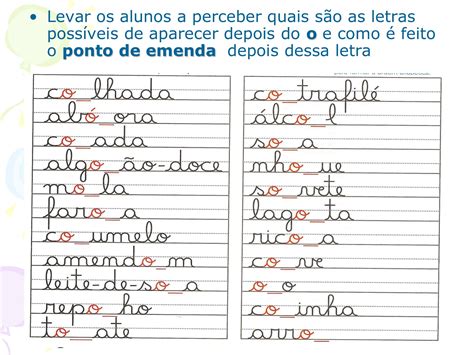 • Levar os alunos a perceber quais são as letras
possíveis de aparecer depois do o e como é feito
o ponto de emenda depois dessa letra
co_lhada
abó_ora
co_ada
algo_ão-doce
mo_la
faro_a
co_umelo
amendo_m
leite-de-so_a
repo_ho
to_ate
co_trafilé
álco_l
so_a
nho_ue
so_vete
lago_ta
rico_a
co_ve
o_o
co_inha
arro_